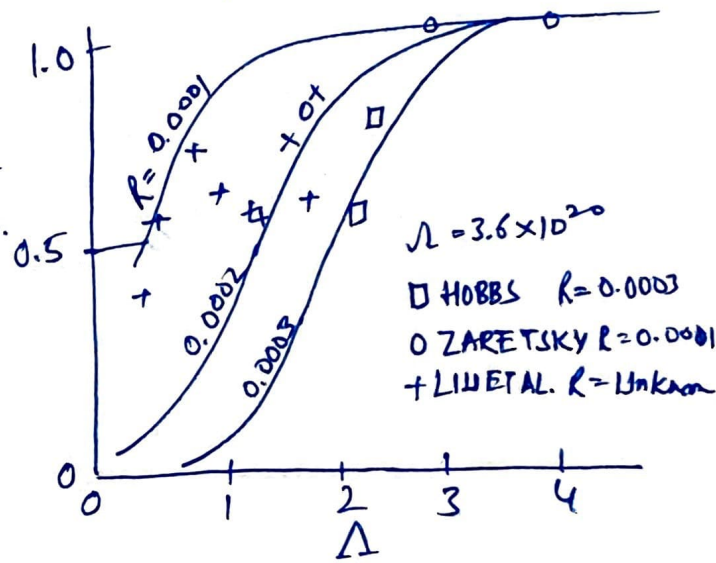 1.0
R= 0.0001
0.5
0.0002
0.0003
Λ = 3.6 × 10²⁰
□ HOBBS R= 0.0003
O ZARETSKY R= 0.0001
+ LIU ET AL. R= Unknown
0
0 1 2 3 4
Λ